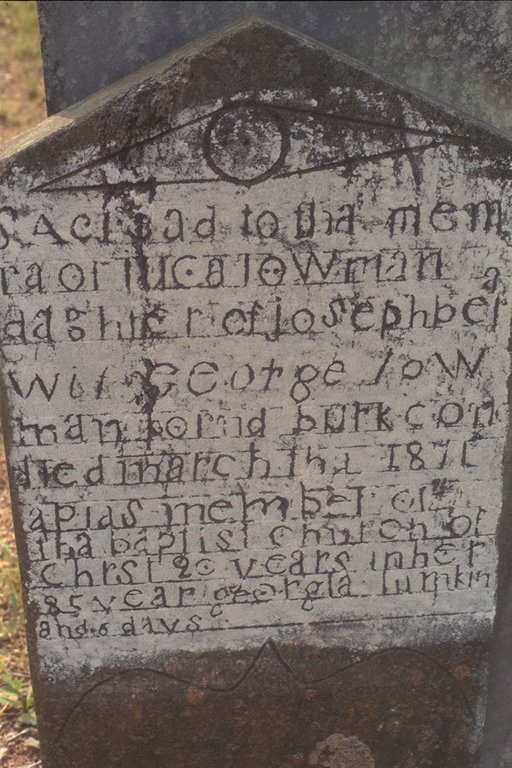 SAcrad to tha mem
ra or luca loWman a
daghter of joseph ber
Wit George loW
man bornd burk con
died march tha 1871
apias member of
tha baptist church of
chrst 20 years in her
85 year georgia lumpkin
and 6 days